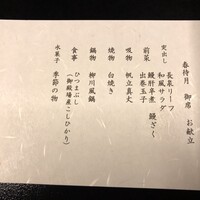 春待月 御席 お献立
突出し 長泉リーフ
和風サラダ
前菜 鰻肝辛煮 鰻ざく
出巻玉子
吸物 帆立真丈
焼物 白焼き
鍋物 柳川風鍋
食事 ひつまぶし
(御殿場産こしひかり)
水菓子 季節の物